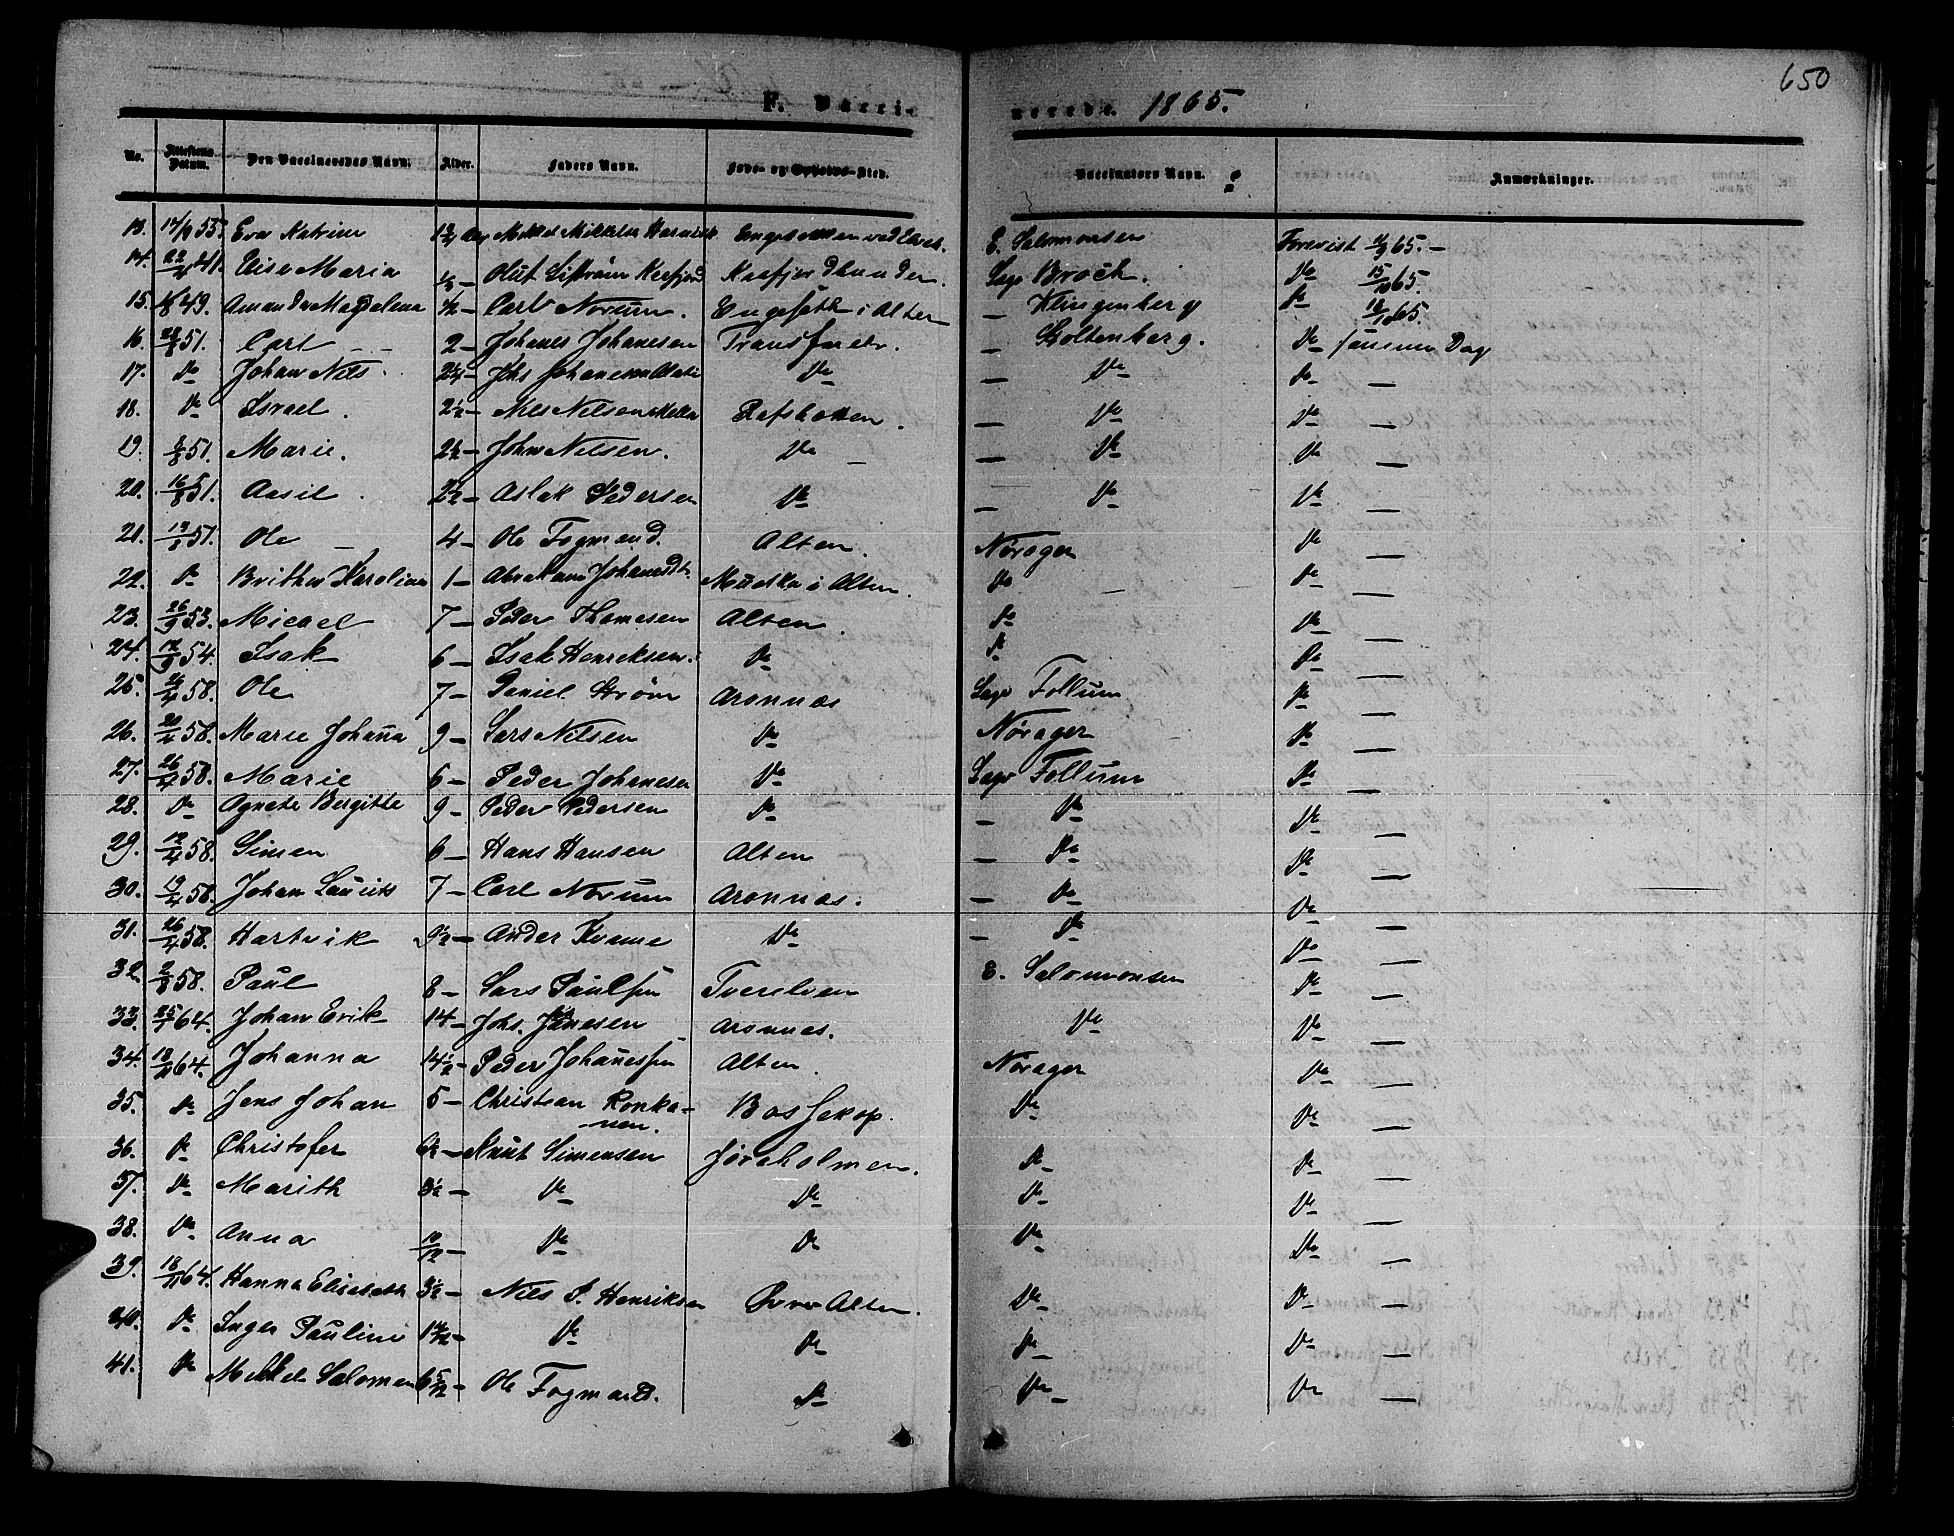 650
F. Vacci- nerede. 1865.
No. Attestens Datum. Den Vaccineredes Navn. Alder. Faders Navn. Føde- og Opholds-Sted. Vaccinators Navn. Anmærkninger.
13. 17/9 55. Eva Katrine E. Salomonsen Forevist 65.-
14. 41. Elise Maria Olut Kaafjordbunden. Broch. Do 15/10 65.
15. 49. Amanda Magdelena Carl Norum. Engesætt i Alten - Klingenberg Do 65.
16. 51. Carl - - 2- Johanes Johanesen Transfaredr. - Stoltenberg. Do samme Dag
17. Do Johan Nils. 2¼- Johs Johanesen Do - Do Do -
18. Do Israel. 2½- Nils Nilsen Rafsbotten. - Do Do -
19. 51. Marie. 2½- John Nilsen. Do - - Do Do -
20. 16/8 51. Aasil. 2½- Aslak Pedersen Do - Do Do -
21. 51. Ole - 4- Ole Fogmand. Alten. Nørager Do -
22. Do Brithe Karolina 1- Abraham Johannes Alten. Do Do -
23. 26/9 53. Micael 7- Peder Thomesen Alten. Do Do -
24. 12/9 54. Isak 6- Isak Henriksen. Do Do Do -
25. 58. Ole 7- Daniel Strøm Aronnæs Follum Do -
26. 20/4 58. Marie Johanna 9- Lars Nilsen Do Nørager Do -
27. 26/4 58. Marie 6- Peder Johanesen Do Follum Do -
28. Do Agnete Bergitte 9- Peder Pedersen Do - Do Do -
29. 12/4 58. Simen 6- Hans Hansen Alten - Do Do -
30. 19/4 58. Johan Laurits 7- Carl Norum Aronnæs. - Do Do -
31. 26/4 58. Hartvik 9½- Ander Kvame Do - Do Do -
32. 2/8 58. Paul 8- Lars Paulsen Tverelven E. Salomonsen Do -
33. 64. Johan Erik 14- Johs. Jonasen Aronnæs. Do Do -
34. 18/11 64. Johanna 14½- Peder Johanessen Alten. Nørager Do -
35. Do Jens Johan 5- Christian Ronka-
nen. Bossekop. Do Do -
36. Do Christofer Knut Simensen Jøraholmen. Do Do -
37. Do Marith 3½- Do Do Do Do -
38. Do Anna 10/12- Do Do Do Do -
39. 18/11 64. Hanna Elisebeth 3½- Nils P. Henriksen Øvre Alten. Do Do -
40. Do Inger Pauline Do Do Do Do -
41. Do Mikkel Salomen 6 5/12- Ole Fogmand. Do Do Do -